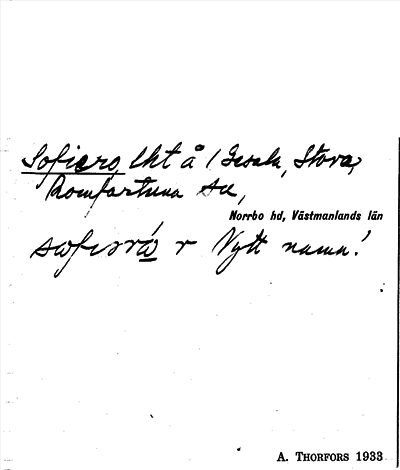 Sofiero lht å 1 Gesala, Stora,
Romfartuna sn,
Norrbo hd, Västmanlands län
sωfιrω r Nytt namn!
A. THORFORS 1933